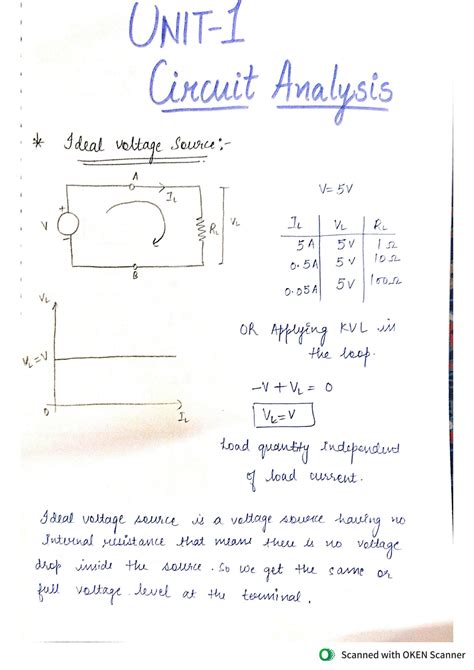 UNIT-1
Circuit Analysis
* Ideal voltage Source:-
A
I_L
V = 5V
+
V
-
R_L
V_L
B
I_L V_L R_L
5A 5V 1Ω
0.5A 5V 10Ω
0.05A 5V 100Ω
V_L
V_L = V
0
I_L
OR Applying KVL in
the loop.
-V + V_L = 0
V_L = V
Load quantity Independend
of load current.
Ideal voltage source is a voltage source having no
Internal resistance that means there is no voltage
drop inside the source. So we get the same or
full voltage level at the terminal.
Scanned with OKEN Scanner